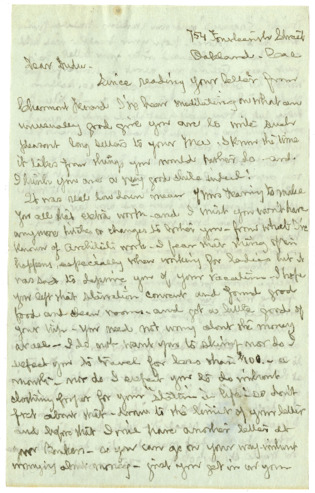 754 Fourteenth Street
Oakland - Cal
Dear Julia.
Since reading your letter from
I've been meditating on what an
unusually good girl you are to write such
pleasant long letters to your Mere. I know the time
it takes from things you would rather do - and
I think you are a very good child indeed!
It was real low down mean of Mrs. to make
you all that extra work - and I trust you won't have
anymore or changes to bother you - from what I've
known of Architects work. I fear that thing often
happens, especially when working for ladies but it
was sad to deprive you of your vacation. I hope
you left that convent and found good
food and clean rooms - and got a little good of
your trip - You need not worry about the money
at all - I do not want you to skimp - nor do I
expect you to travel for less than $100. - a
month - nor do I expect you to do without
clothing for your station in life: so don't
fret about that - Draw to the limit of your letter
and before that I will have another letter at
your Bankers - so you can go on your way without
worrying about money - glad you got in on your